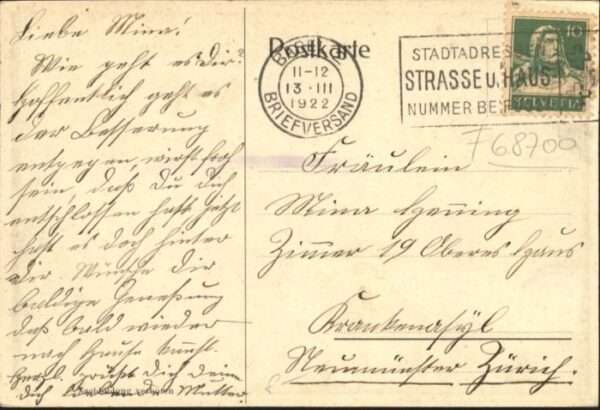 Liebe Mina!
Wie geht es Dir?
Hoffentlich geht es
der Besserung
entgegen, wirst froh
sein, daß Du Dich
entschlossen hast, jetzt
hast es doch hinter
Dir. Wünsche Dir
baldige Genesung
daß bald wieder
nach Hause kannst.
Herzl. grüßt Dich Deine
Dich
Mutter
Postkarte
11-12
13.III
1922
BRIEFVERSAND
STADTADRES
STRASSE u. HAUS
NUMMER BE
10
HELVETIA
F 68700
Fräulein
Mina Henning
Zimmer 19 Oberes Haus
Krankenasyl
Neumünster Zürich.